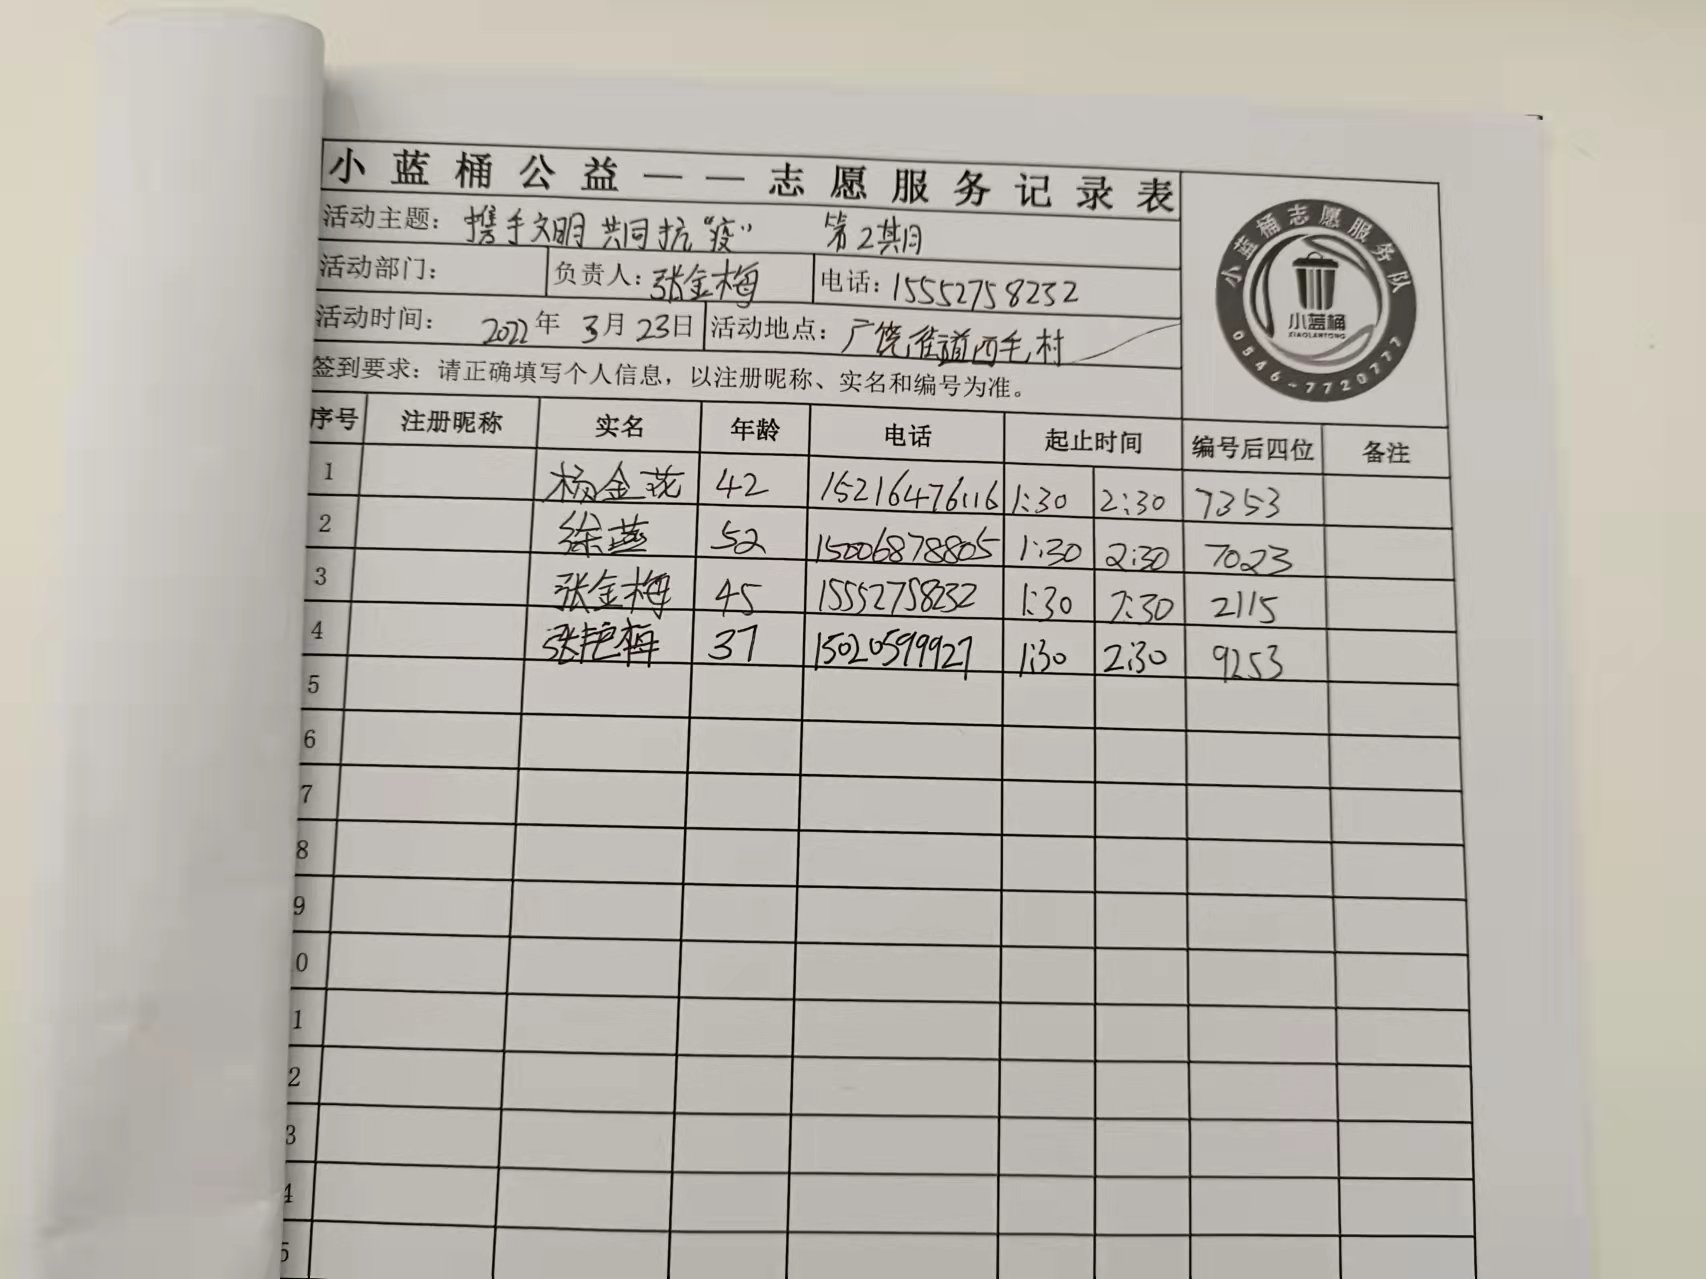 小蓝桶公益——志愿服务记录表
活动主题：携手文明 共同抗“疫” 第2期
活动部门： 负责人：张金梅 电话：15552758232
活动时间： 2022年 3月23日 活动地点：广饶街道西毛村
签到要求：请正确填写个人信息，以注册昵称、实名和编号为准。
小蓝桶志愿服务队
小蓝桶
XIAOLANTONG
0546-7720777
序号 注册昵称 实名 年龄 电话 起止时间 编号后四位 备注
1 杨金花 42 15216476116 1:30 2:30 7353
2 徐燕 52 15006878805 1:30 2:30 7023
3 张金梅 45 15552758232 1:30 2:30 2115
4 张艳梅 37 15020599927 1:30 2:30 9253
5
6
7
8
9
0
1
2
3
4
5